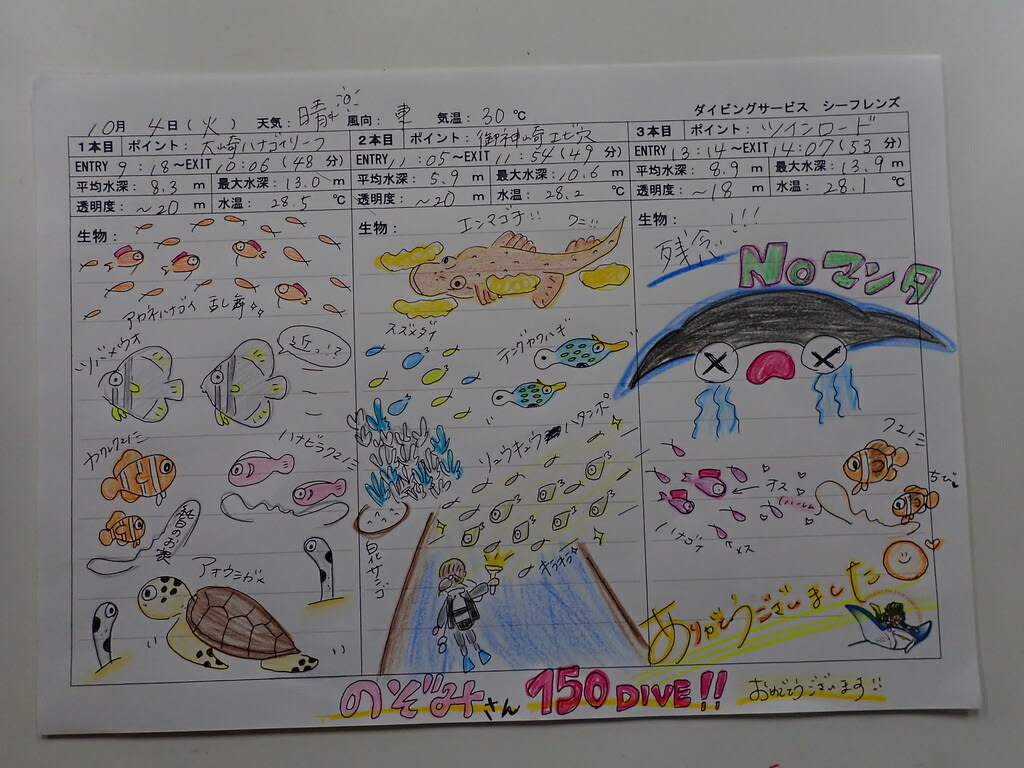 ダイビングサービス シーフレンズ
10月 4日(火) 天気: 晴 風向: 東 気温: 30℃
1本目 ポイント: 大崎ハナゴイリーフ
ENTRY 9:18~EXIT 10:06(48分)
平均水深: 8.3 m 最大水深: 13.0 m
透明度: ~20 m 水温: 28.5 ℃
生物:
アカネハナゴイ 乱し舞
ツバメウオ
近っ!?
カクレクマノミ
ハナビラクマノミ
純白のお家
アオウミガメ
2本目 ポイント: 御神崎エビ穴
ENTRY 11:05~EXIT 11:54(49分)
平均水深: 5.9 m 最大水深: 10.6 m
透明度: ~20 m 水温: 28.2 ℃
生物:
エンマゴチ!!
ワニ!!
スズメダイ
テングカワハギ
リュウキュウハタンポ
白化サンゴ
キラキラ
3本目 ポイント: ツインロード
ENTRY 13:14~EXIT 14:07(53分)
平均水深: 8.9 m 最大水深: 13.9 m
透明度: ~18 m 水温: 28.1 ℃
生物:
残念 !!!
Noマンタ
クマノミ
ちび
オス
ハナゴイ
メス
ありがとうございました
のぞみさん 150 DIVE!! おめでとうございます!!